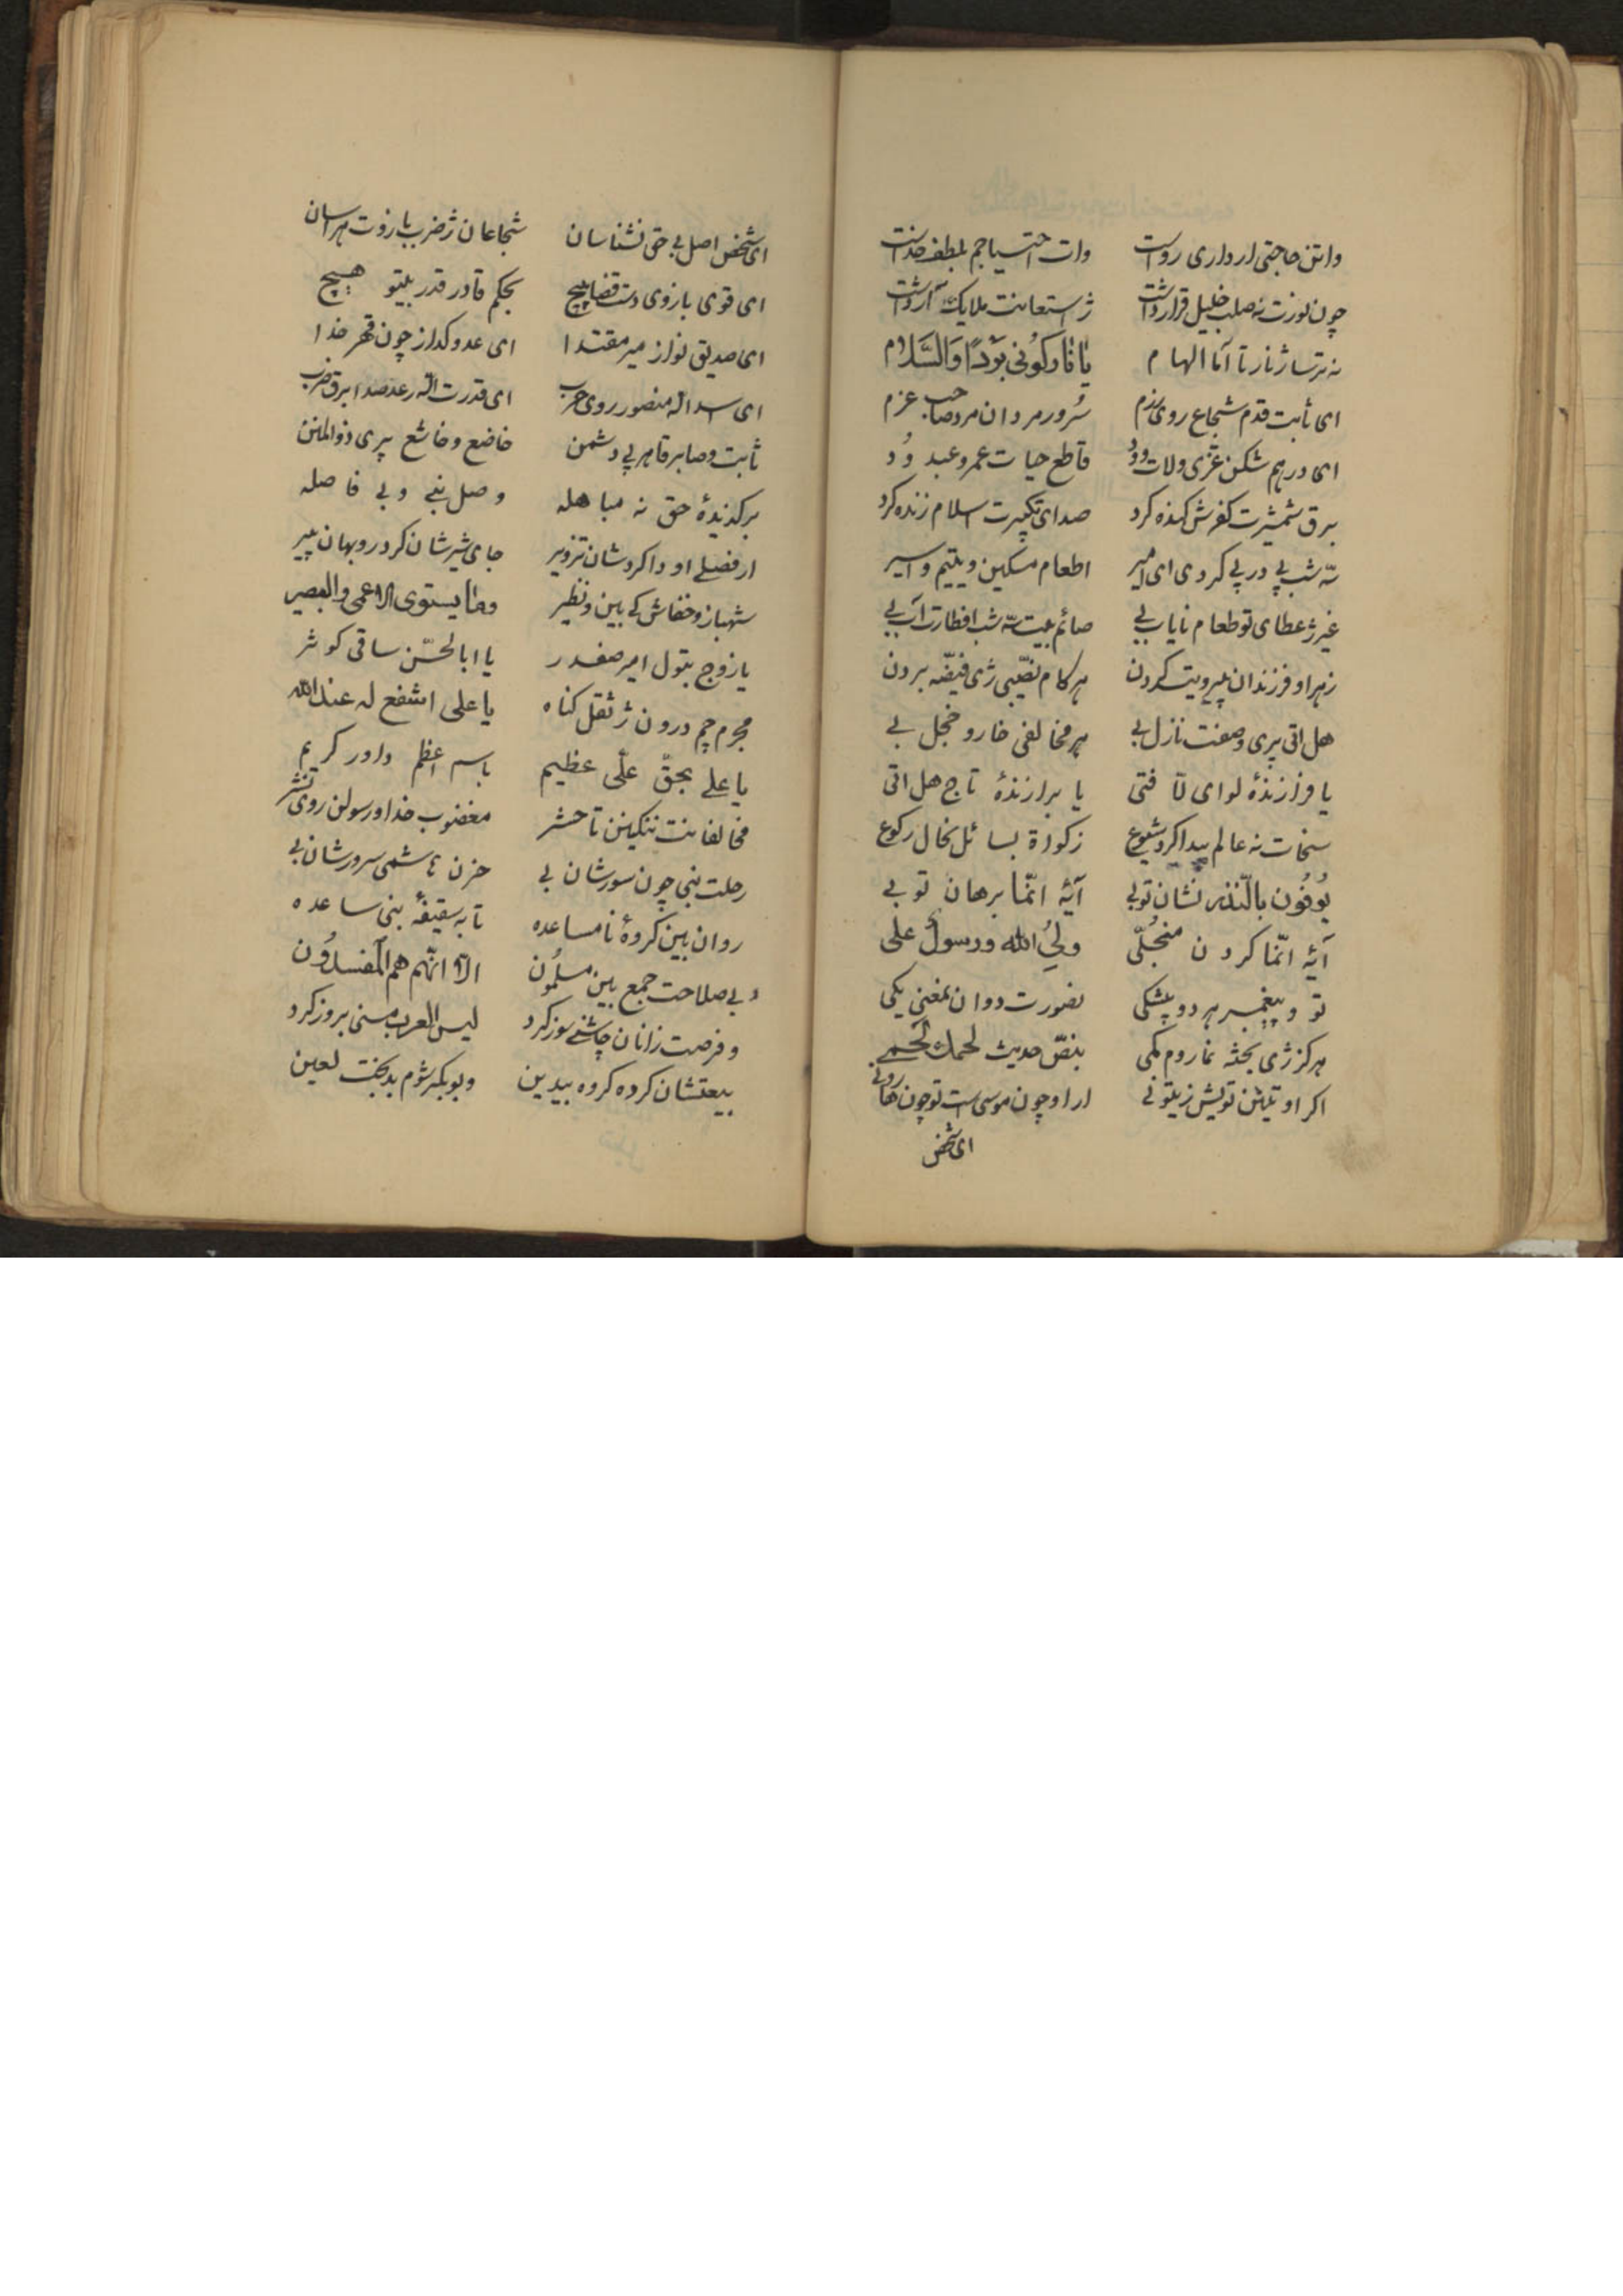 واتن حاجتی ار داری رواست وات احتیاجم بلطف خداست
چون نورت نه صلب خلیل قرار داشت ژ استعانت ملایک
نه ترسا ژ نار تا آما الهام یا نار کونی بردا والسلام
ای ثابت قدم شجاع روی رزم سرور مردان مرد صاحب عزم
ای درهم شکن عزی ولات و ود قاطع حیات عمرو عبد ود
برق شمشیرت کفرش کنده کرد صدای تکبیرت اسلام زنده کرد
سه شب پی در پی کردی ای امیر اطعام مسکین و یتیم و اسیر
غیر ژ عطای تو طعام نایاب بی صائم بیت سه شب افطارت آب بی
زهرا و فرزندان پیرویت کردن هر کام نصیبی ژی فیضه بردن
هل اتی پری وصفت نازل بی هر مخالفی خار و خجل بی
یا فرازندهٔ لوای لا فتی یا برازندهٔ تاج هل اتی
سخات نه عالم پیدا کرد شیوع زکواة بسائل نحال رکوع
یوفون بالنذر نشان تو بی آیهٔ انما برهان تو بی
آیهٔ انما کردن منجلی ولی الله و رسول علی
تو و پیغمبر هر دو بیشکی بصورت دوان بمعنی یکی
هرکز ژی بحثه نماروم کمی بنص حدیث لحمک لحمی
اکر او تین تویش زیتونی ار او چون موسی است تو چون هارونی
ای شخص
ای شخص اصل بی حق نشناسان شجاعان ژ ضرب بازوت هراسان
ای قوی بازوی دست قضا پیچ بحکم قادر قدر بیتو هیچ
ای صدیق نواز میر مقتدا ای عدو کداز چون قهر خدا
ای اسد اله منصور روی حرب ای قدرت اله رعد صدا برق ضرب
ثابت و صابر قاهر پی دشمن خاضع و خاشع پری ذوالمنن
برکزیدهٔ حق نه مباهله وصل نبی و بی فاصله
ار فضلی او دا کردشان تزویر جای شیر شان کرد روبهان پیر
شهباز و خفاش کی بین و نظیر وما یستوی الاعمی والبصیر
یا زوج بتول امیر صفدر یا ابالحسن ساقی کوثر
مجرم چم درون ژ ثقل کناه یا علی اشفع له عند الله
یا علی بحق علی عظیم باسم اعظم داور کریم
مخالفانت ننکینن تا حشر مغضوب خدا و رسولن روی نشر
رحلت نبی چون سورشان بی حزن هاشمی سرورشان بی
روان بین کروهٔ نامساعده تا به سقیفهٔ بنی ساعده
بی صلاحت جمع بین مسلمون الا انهم هم المفسدون
و فرصت زانان چاشنی سوز کرد لیس العرب منی بروز کرد
بیعتشان کرده کروه بیدین و بوبکر شوم بدبخت لعین